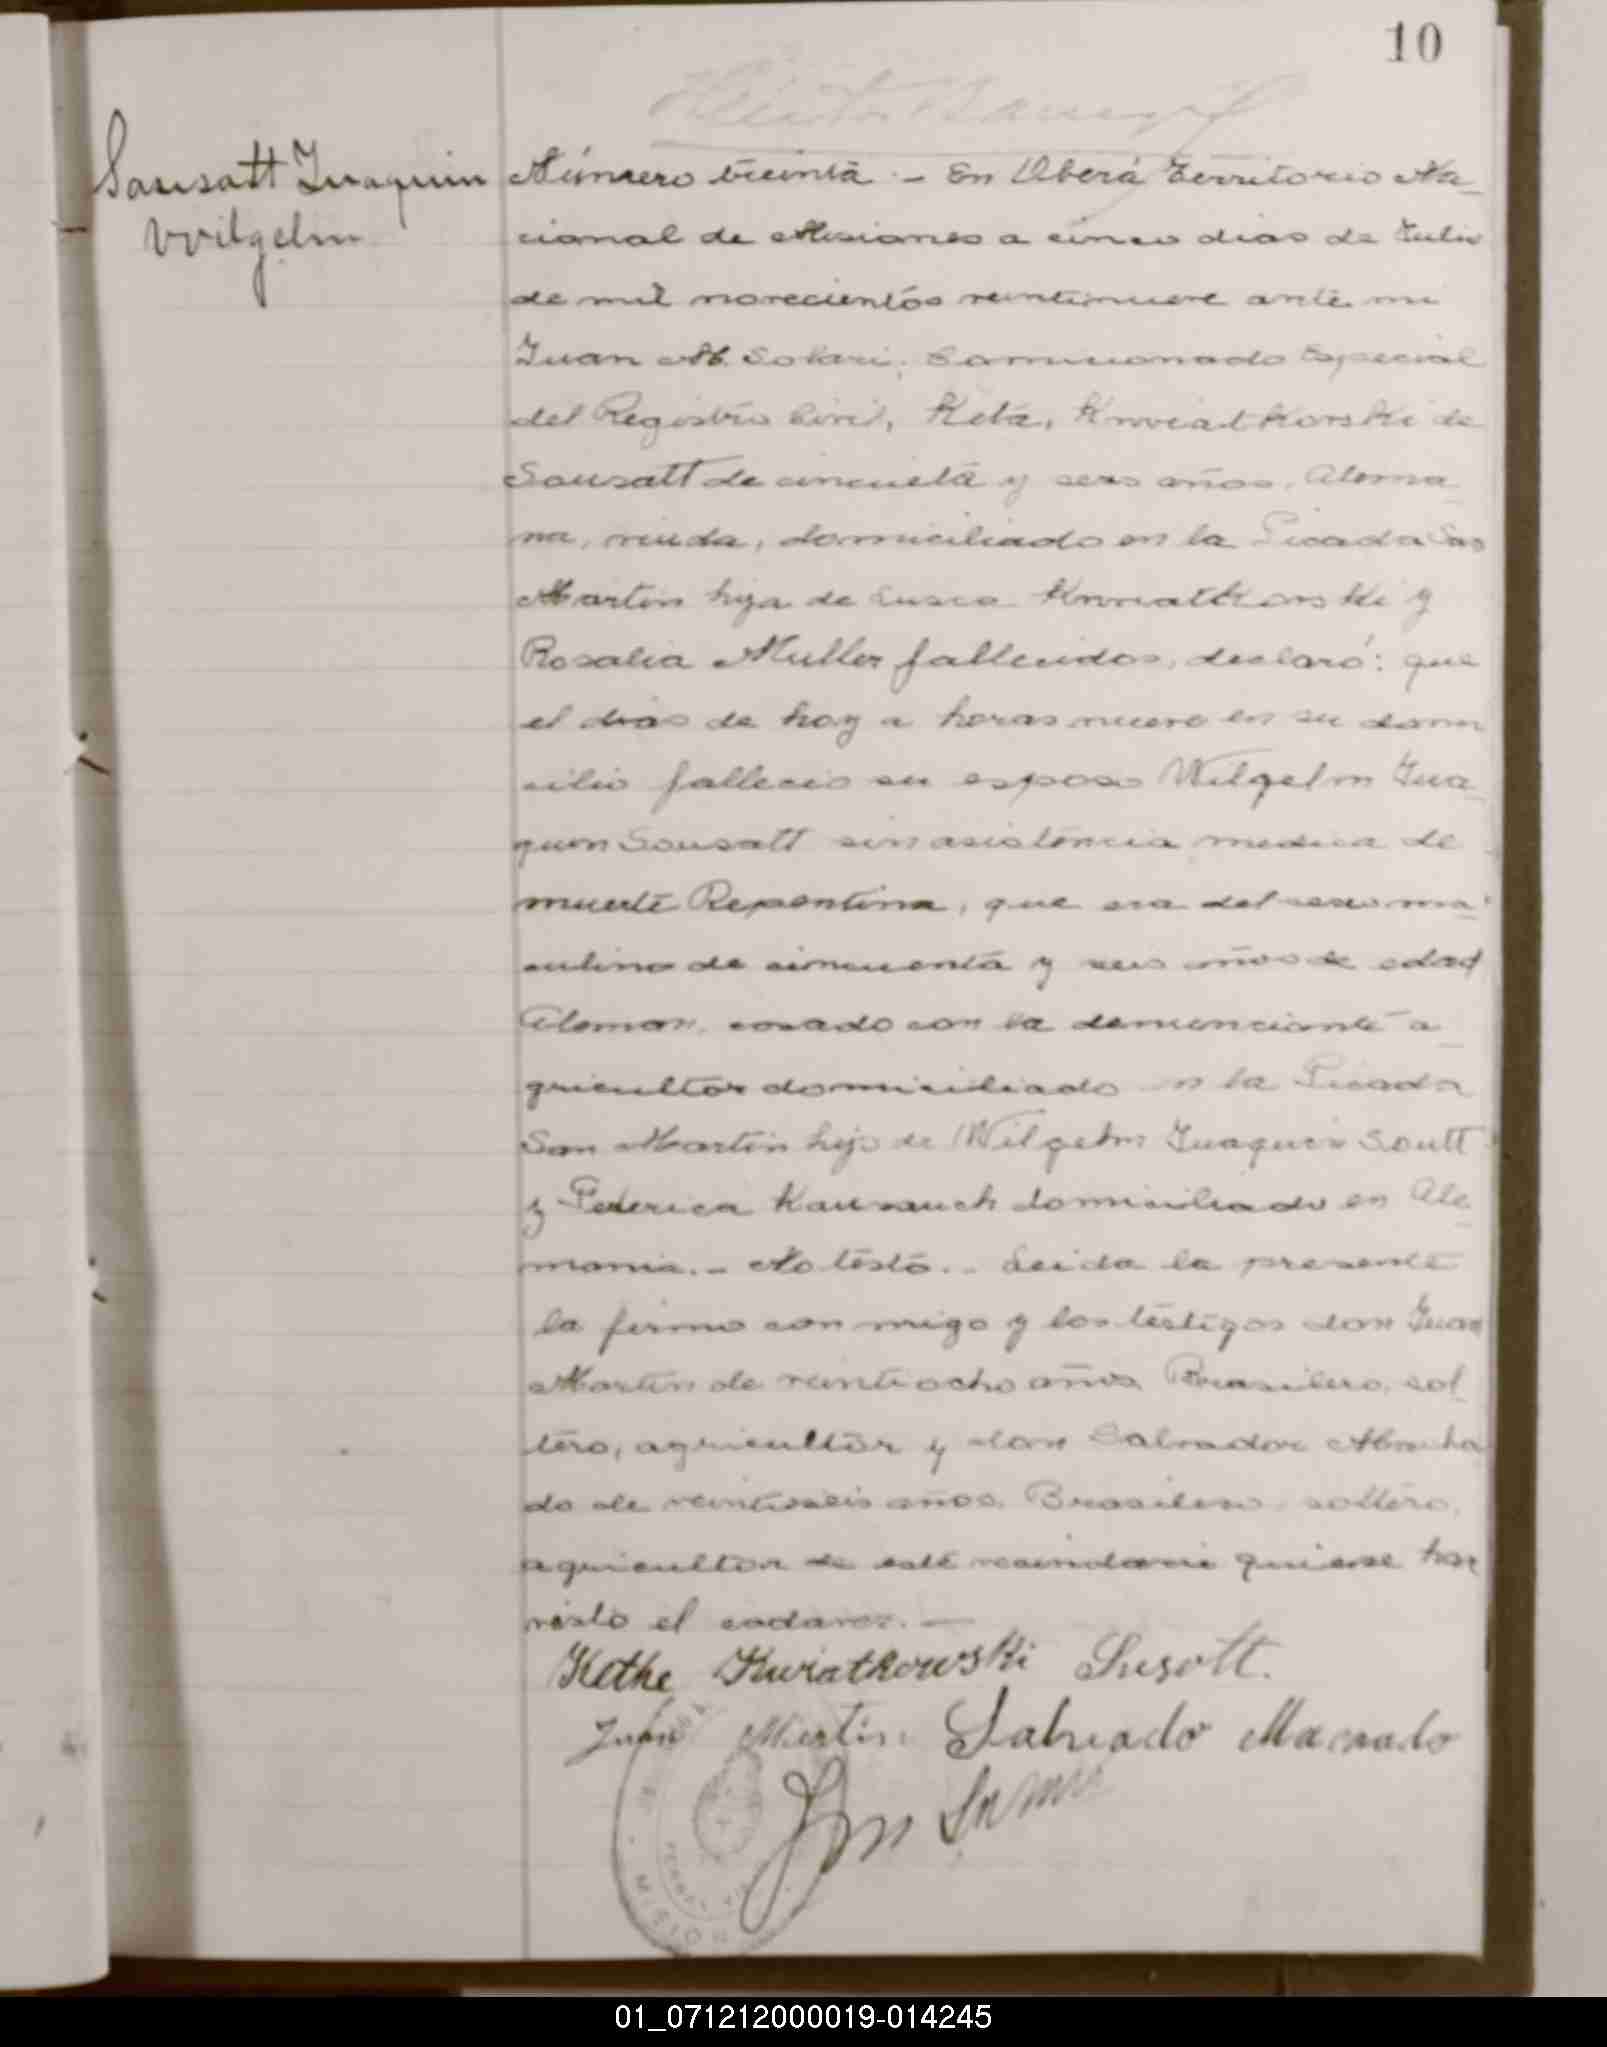 10
Sausatt Juaquin
Wilgelm
Número treinta. - En Oberá Territorio Na-
cional de Misiones a cinco dias de Julio
de mil novecientos veintinueve ante mi
Juan M. Solari, Comicionado Especial
del Registro Civil, Keta, Kwiatkorski de
Sausatt de cincueta y seis años, Alema-
na, viuda, domiciliado en la Picada San
Martin hija de Kwiatkorski y
Rosalia Muller fallecidos, declaró: que
el dias de hoy a horas nueve en su domi
cilio fallecio su esposo Wilgelm Jua-
quin Sousatt sin asistencia medica de
muerte Repentina, que era del sexo ma-
culino de cincuenta y seis años de edad
Aleman, casado con la denunciante a-
gricultor domiciliado en la Picada
San Martin hijo de Wilgelm Juaquin Soutt
y Federica domiciliado en Ale-
mania. - No testó. - Leida la presente
la firmo con migo y los testigos don Juan
Martin de veintiocho años Brasilero, sol-
tero, agricultor y don Salvador Macha
do de veintiseis años, Brasilero, soltero,
agricultor de este vecindario quiense han
visto el cadaver. -
Kethe Kwiatkowski Susott.
Juan Martin Salvado Macado
MISION
01_071212000019-014245